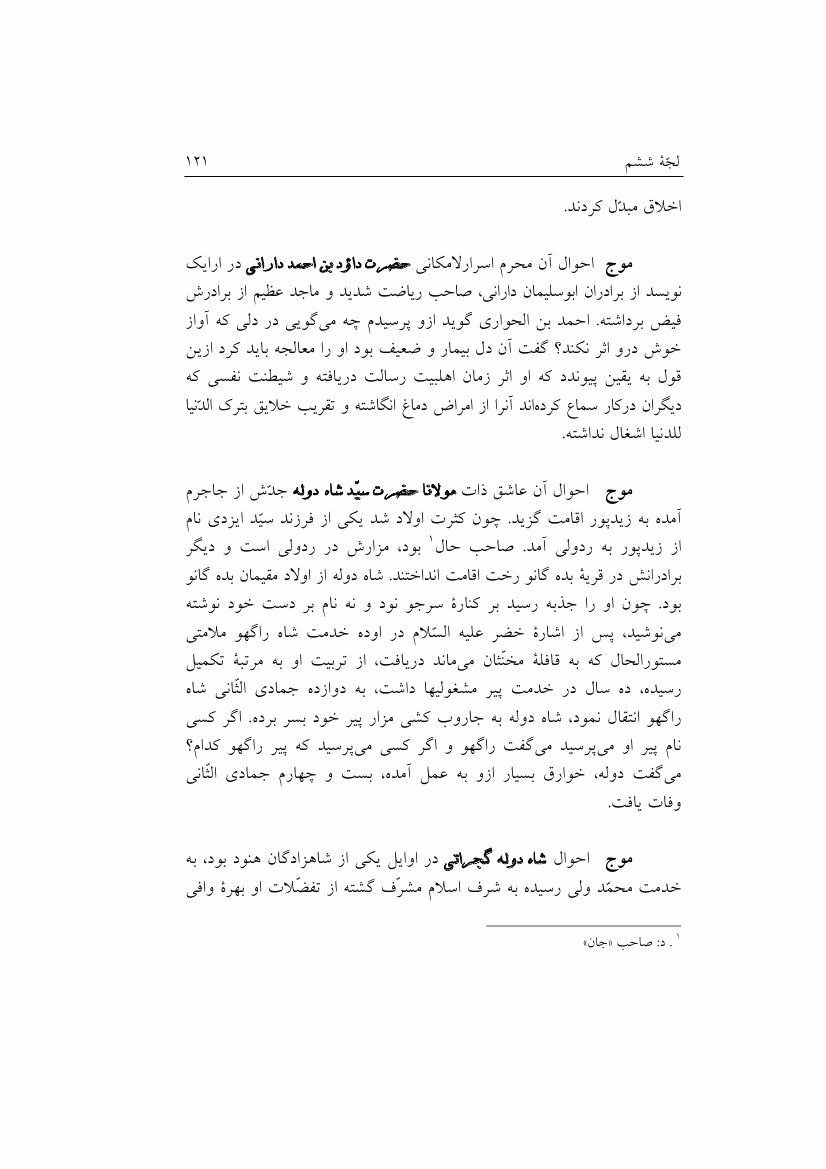 لجّهٔ ششم ۱۲۱
اخلاق مبدّل کردند.
موج احوال آن محرم اسرارلامکانی حضرت داؤد بن احمد دارانی در ارایک
نویسد از برادران ابوسلیمان دارانی، صاحب ریاضت شدید و ماجد عظیم از برادرش
فیض برداشته. احمد بن الحواری گوید ازو پرسیدم چه می‌گویی در دلی که آواز
خوش درو اثر نکند؟ گفت آن دل بیمار و ضعیف بود او را معالجه باید کرد ازین
قول به یقین پیوندد که او اثر زمان اهلبیت رسالت دریافته و شیطنت نفسی که
دیگران درکار سماع کرده‌اند آنرا از امراض دماغ انگاشته و تقریب خلایق بترک الدّنیا
للدنیا اشغال نداشته.
موج احوال آن عاشق ذات مولانا حضرت سیّد شاه دوله جدّش از جاجرم
آمده به زیدپور اقامت گزید. چون کثرت اولاد شد یکی از فرزند سیّد ایزدی نام
از زیدپور به ردولی آمد. صاحب حال۱ بود، مزارش در ردولی است و دیگر
برادرانش در قریهٔ بده گانو رخت اقامت انداختند. شاه دوله از اولاد مقیمان بده گانو
بود. چون او را جذبه رسید بر کنارهٔ سرجو نود و نه نام بر دست خود نوشته
می‌نوشید، پس از اشارهٔ خضر علیه السّلام در اوده خدمت شاه راگهو ملامتی
مستورالحال که به قافلهٔ مخنّثان می‌ماند دریافت، از تربیت او به مرتبهٔ تکمیل
رسیده، ده سال در خدمت پیر مشغولیها داشت، به دوازده جمادی الثّانی شاه
راگهو انتقال نمود، شاه دوله به جاروب کشی مزار پیر خود بسر برده. اگر کسی
نام پیر او می‌پرسید می‌گفت راگهو و اگر کسی می‌پرسید که پیر راگهو کدام؟
می‌گفت دوله، خوارق بسیار ازو به عمل آمده، بست و چهارم جمادی الثّانی
وفات یافت.
موج احوال شاه دوله گجراتی در اوایل یکی از شاهزادگان هنود بود، به
خدمت محمّد ولی رسیده به شرف اسلام مشرّف گشته از تفضّلات او بهرهٔ وافی
۱ . د: صاحب «جان»